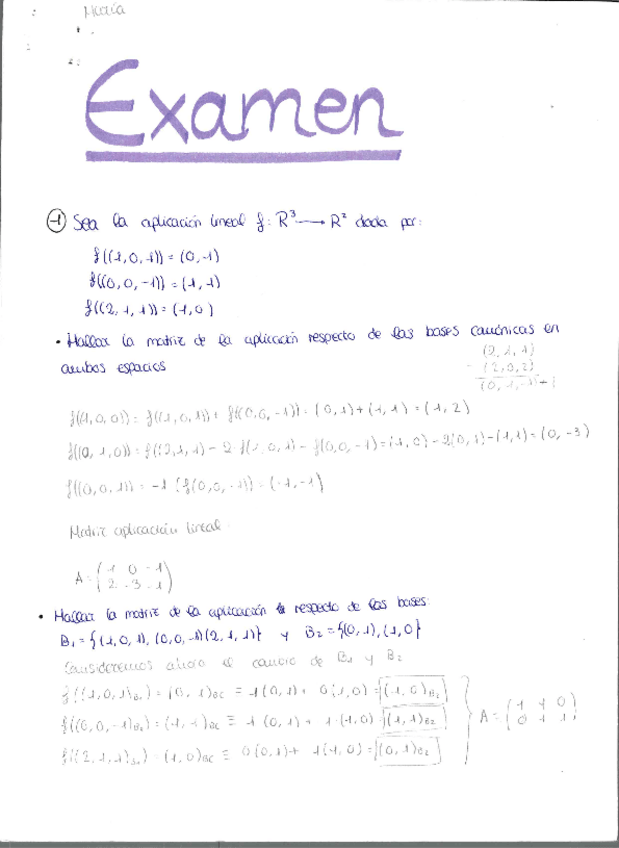 María
Examen
1 Sea la aplicación lineal f: R³ → R² dada por:
f((1,0,1)) = (0,1)
f((0,0,-1)) = (1,1)
f((2,1,1)) = (1,0)
• Hallar la matriz de la aplicación respecto de las bases canónicas en
ambos espacios
(2,1,1)
- (2,0,2)
(0,1,-1)
f((1,0,0)) = f((1,0,1)) + f((0,0,-1)) = (0,1)+(1,1) = (1,2)
f((0,1,0)) = f((2,1,1) - 2 f(1,0,1) - f(0,0,-1) = (1,0) - 2(0,1) - (1,1) = (0,-3)
f((0,0,1)) = -1 (f(0,0,-1)) = (-1,-1)
Matriz aplicación lineal
A = (1 0 -1
2 -3 -1)
• Hallar la matriz de la aplicación respecto de las bases:
B₁ = {(1,0,1), (0,0,-1)(2,1,1)} y B₂ = {(0,1),(1,0}
Consideremos ahora el cambio de B₁ y B₂
f((1,0,1)B₁) = (0,1)BC ≡ 1(0,1) + 0(1,0) = (1,0)B₂
f((0,0,-1)B₁) = (1,1)BC ≡ 1(0,1) + 1(1,0) = (1,1)B₂
f((2,1,1)B₁) = (1,0)BC ≡ 0(0,1) + 1(1,0) = (0,1)B₂
A = (1 1 0
0 1 1)